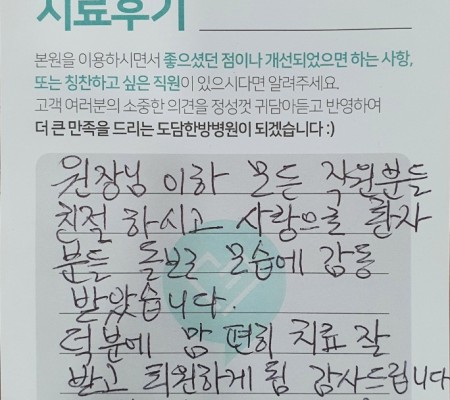 치료후기
본원을 이용하시면서 좋으셨던 점이나 개선되었으면 하는 사항,
또는 칭찬하고 싶은 직원이 있으시다면 알려주세요.
고객 여러분의 소중한 의견을 정성껏 귀담아듣고 반영하여
더 큰 만족을 드리는 도담한방병원이 되겠습니다 :)
원장님 이하 모든 직원분들
친절 하시고 사랑으로 환자
분들 돌보는 모습에 감동
받았습니다.
덕분에 맘 편히 치료 잘
받고 퇴원하게 됨 감사드립니다